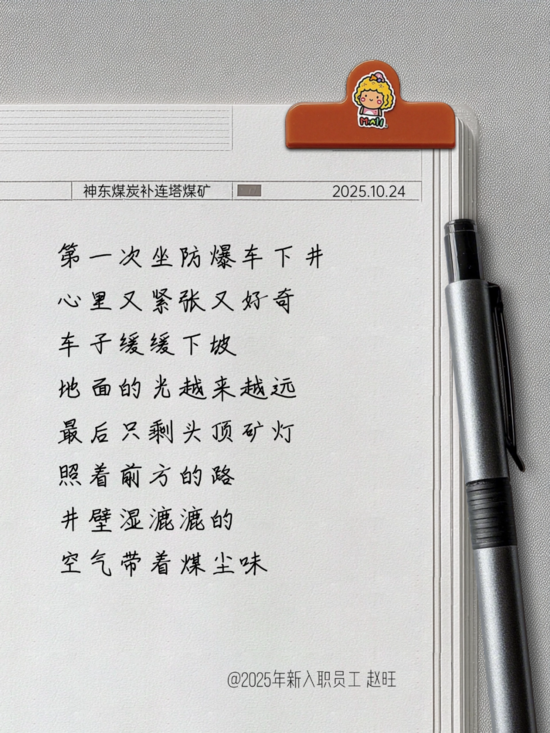 神东煤炭补连塔煤矿 2025.10.24
第一次坐防爆车下井
心里又紧张又好奇
车子缓缓下坡
地面的光越来越远
最后只剩头顶矿灯
照着前方的路
井壁湿漉漉的
空气带着煤尘味
@2025年新入职员工 赵旺